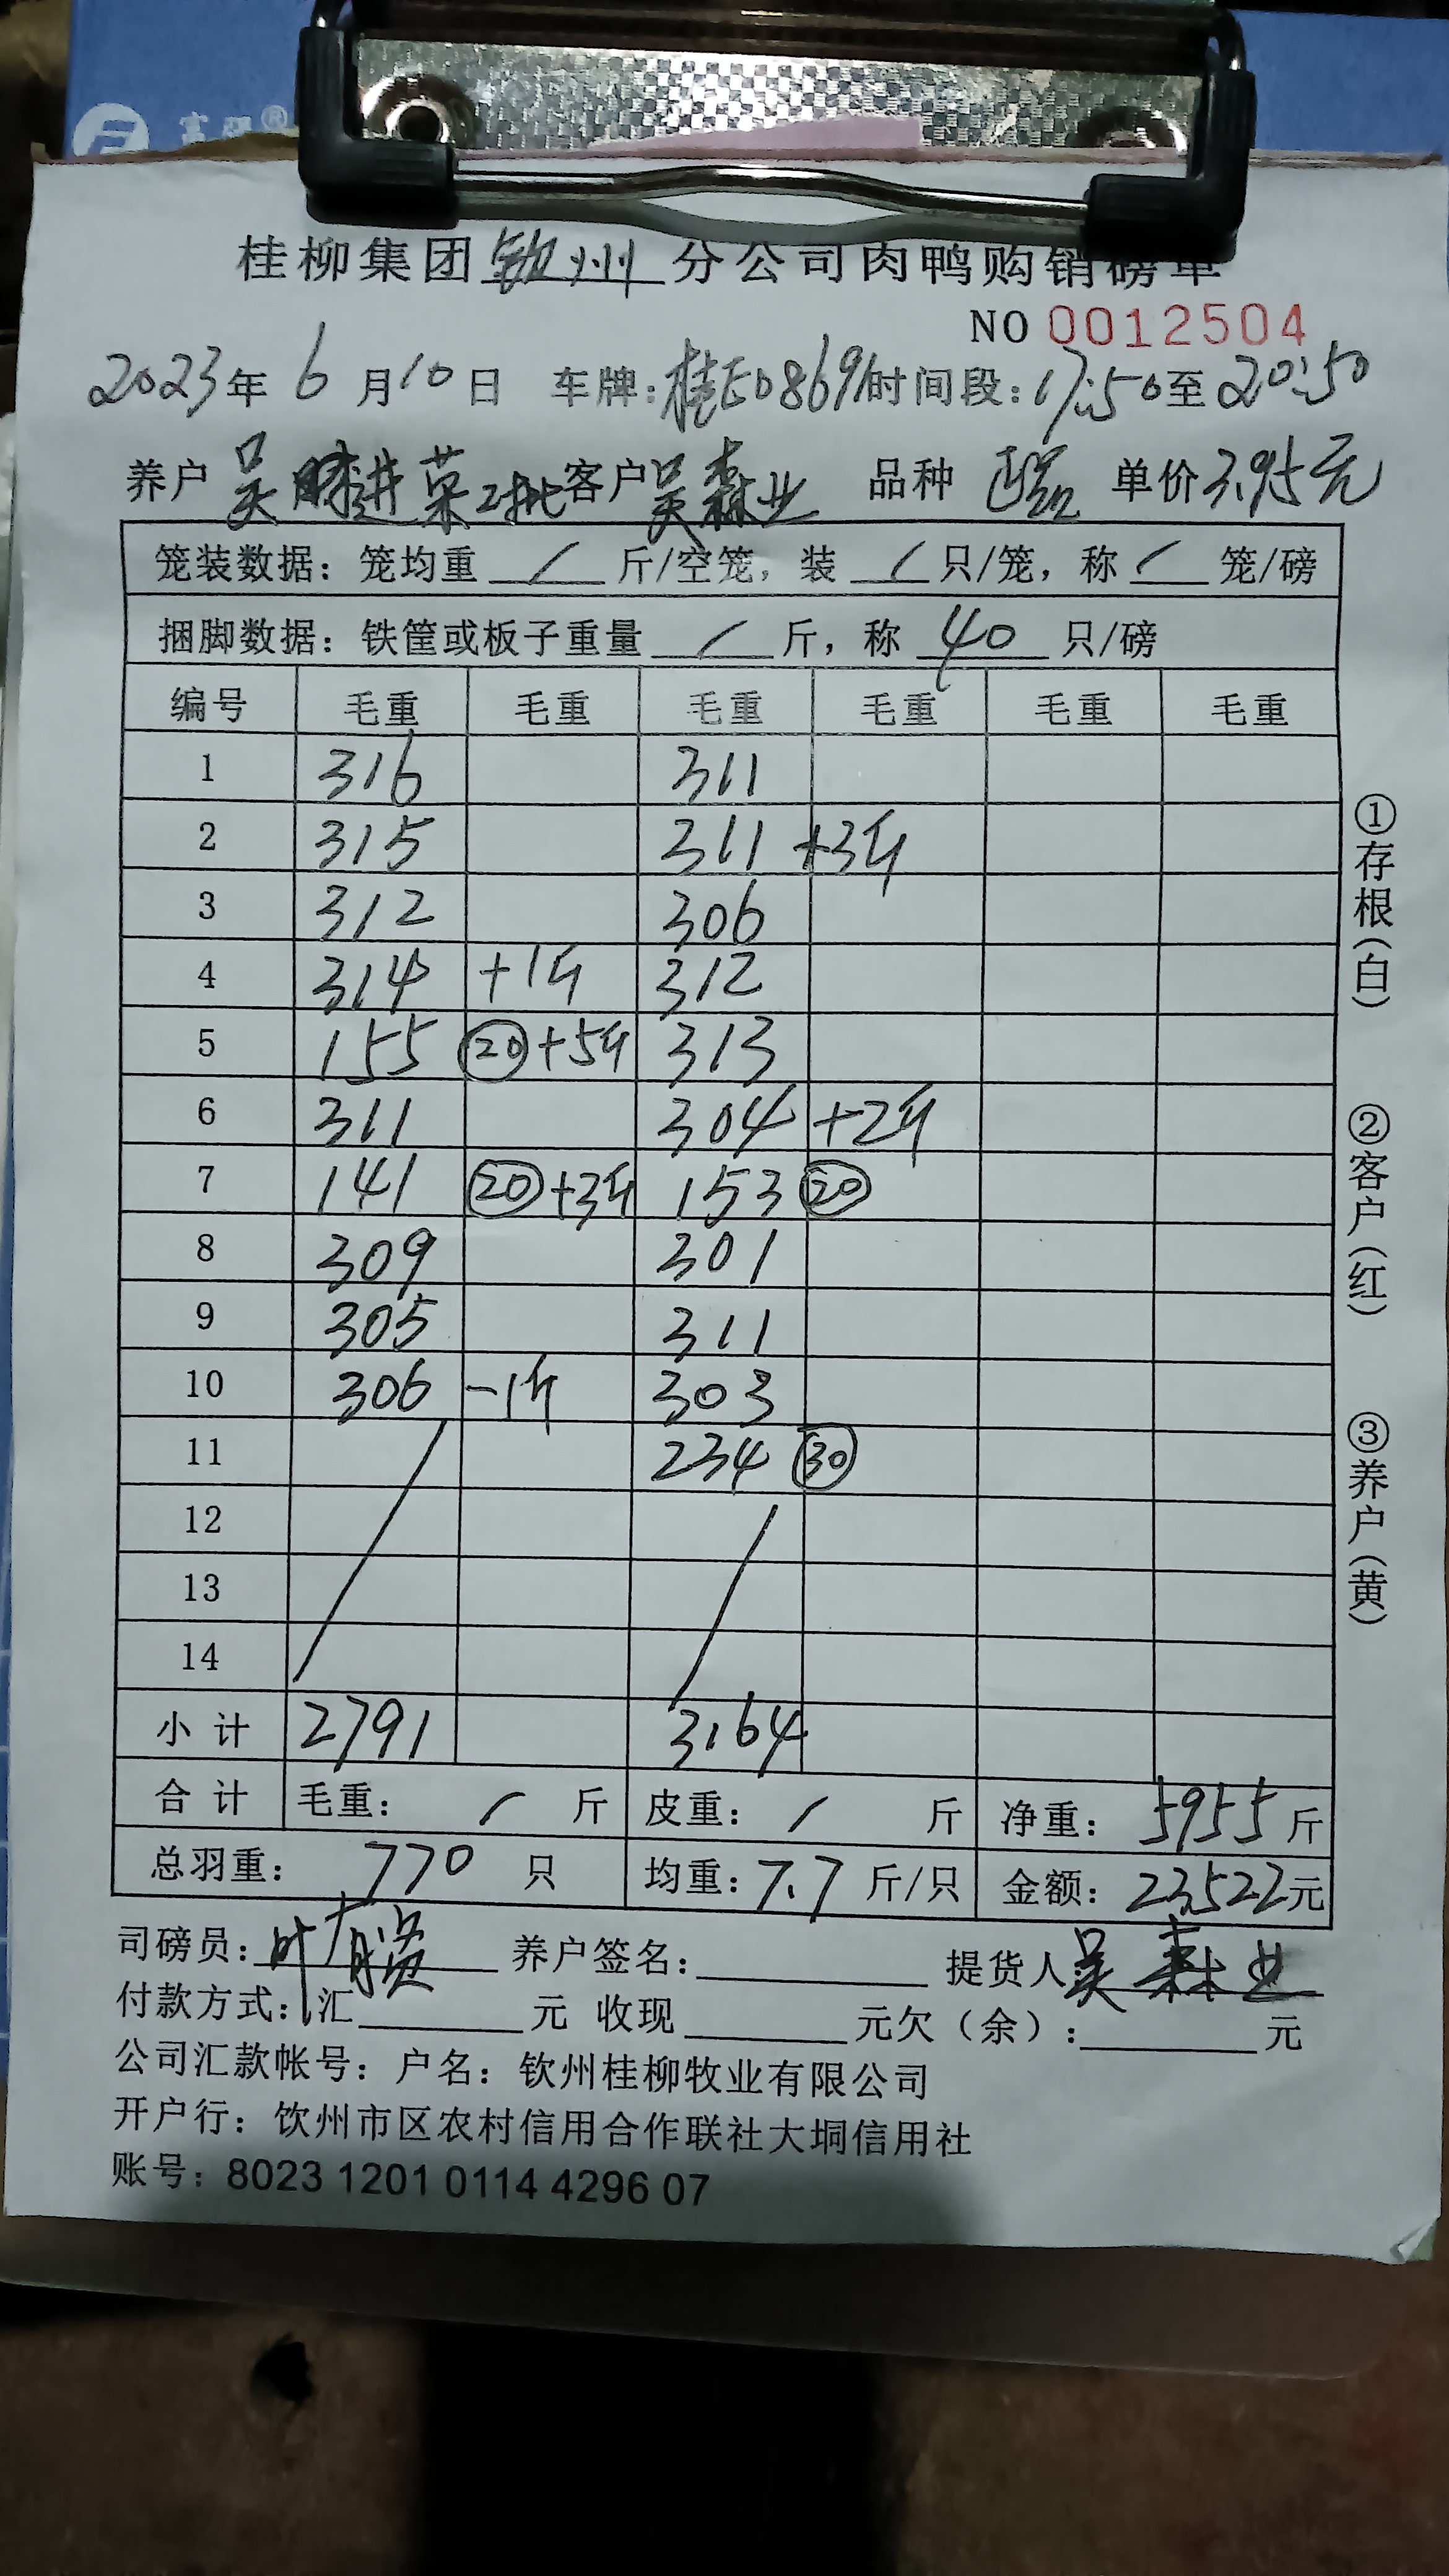 富强®
桂柳集团钦州分公司肉鸭购销磅单
NO 0012504
2023年6月10日 车牌:桂E0869 时间段:17:50至20:50
养户 吴 进 菜2批 客户 吴森业 品种 单价 3.95元
笼装数据: 笼均重 / 斤/空笼, 装 / 只/笼, 称 / 笼/磅
捆脚数据: 铁筐或板子重量 / 斤, 称 40 只/磅
编号 毛重 毛重 毛重 毛重 毛重 毛重
1 316 311
2 315 311 +3斤
3 312 306
4 314 +1斤 312
5 155 ⑳+5斤 313
6 311 304 +2斤
7 141 ⑳+3斤 153 ⑳
8 309 301
9 305 311
10 306 -1斤 303
11 234 ㉚
12
13
14
小计 2791 3164
合计 毛重: / 斤 皮重: / 斤 净重: 5955 斤
总羽重: 770 只 均重: 7.7 斤/只 金额: 23522元
司磅员: 叶 养户签名: 提货人 吴森业
付款方式: 汇 元 收现 元欠(余): 元
公司汇款帐号: 户名: 钦州桂柳牧业有限公司
开户行: 饮州市区农村信用合作联社大垌信用社
账号: 8023 1201 0114 4296 07
①存根(白)
②客户(红)
③养户(黄)